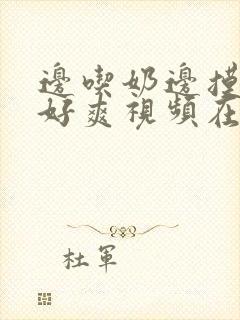 邊喫奶邊摸
好爽視頻在
杜軍